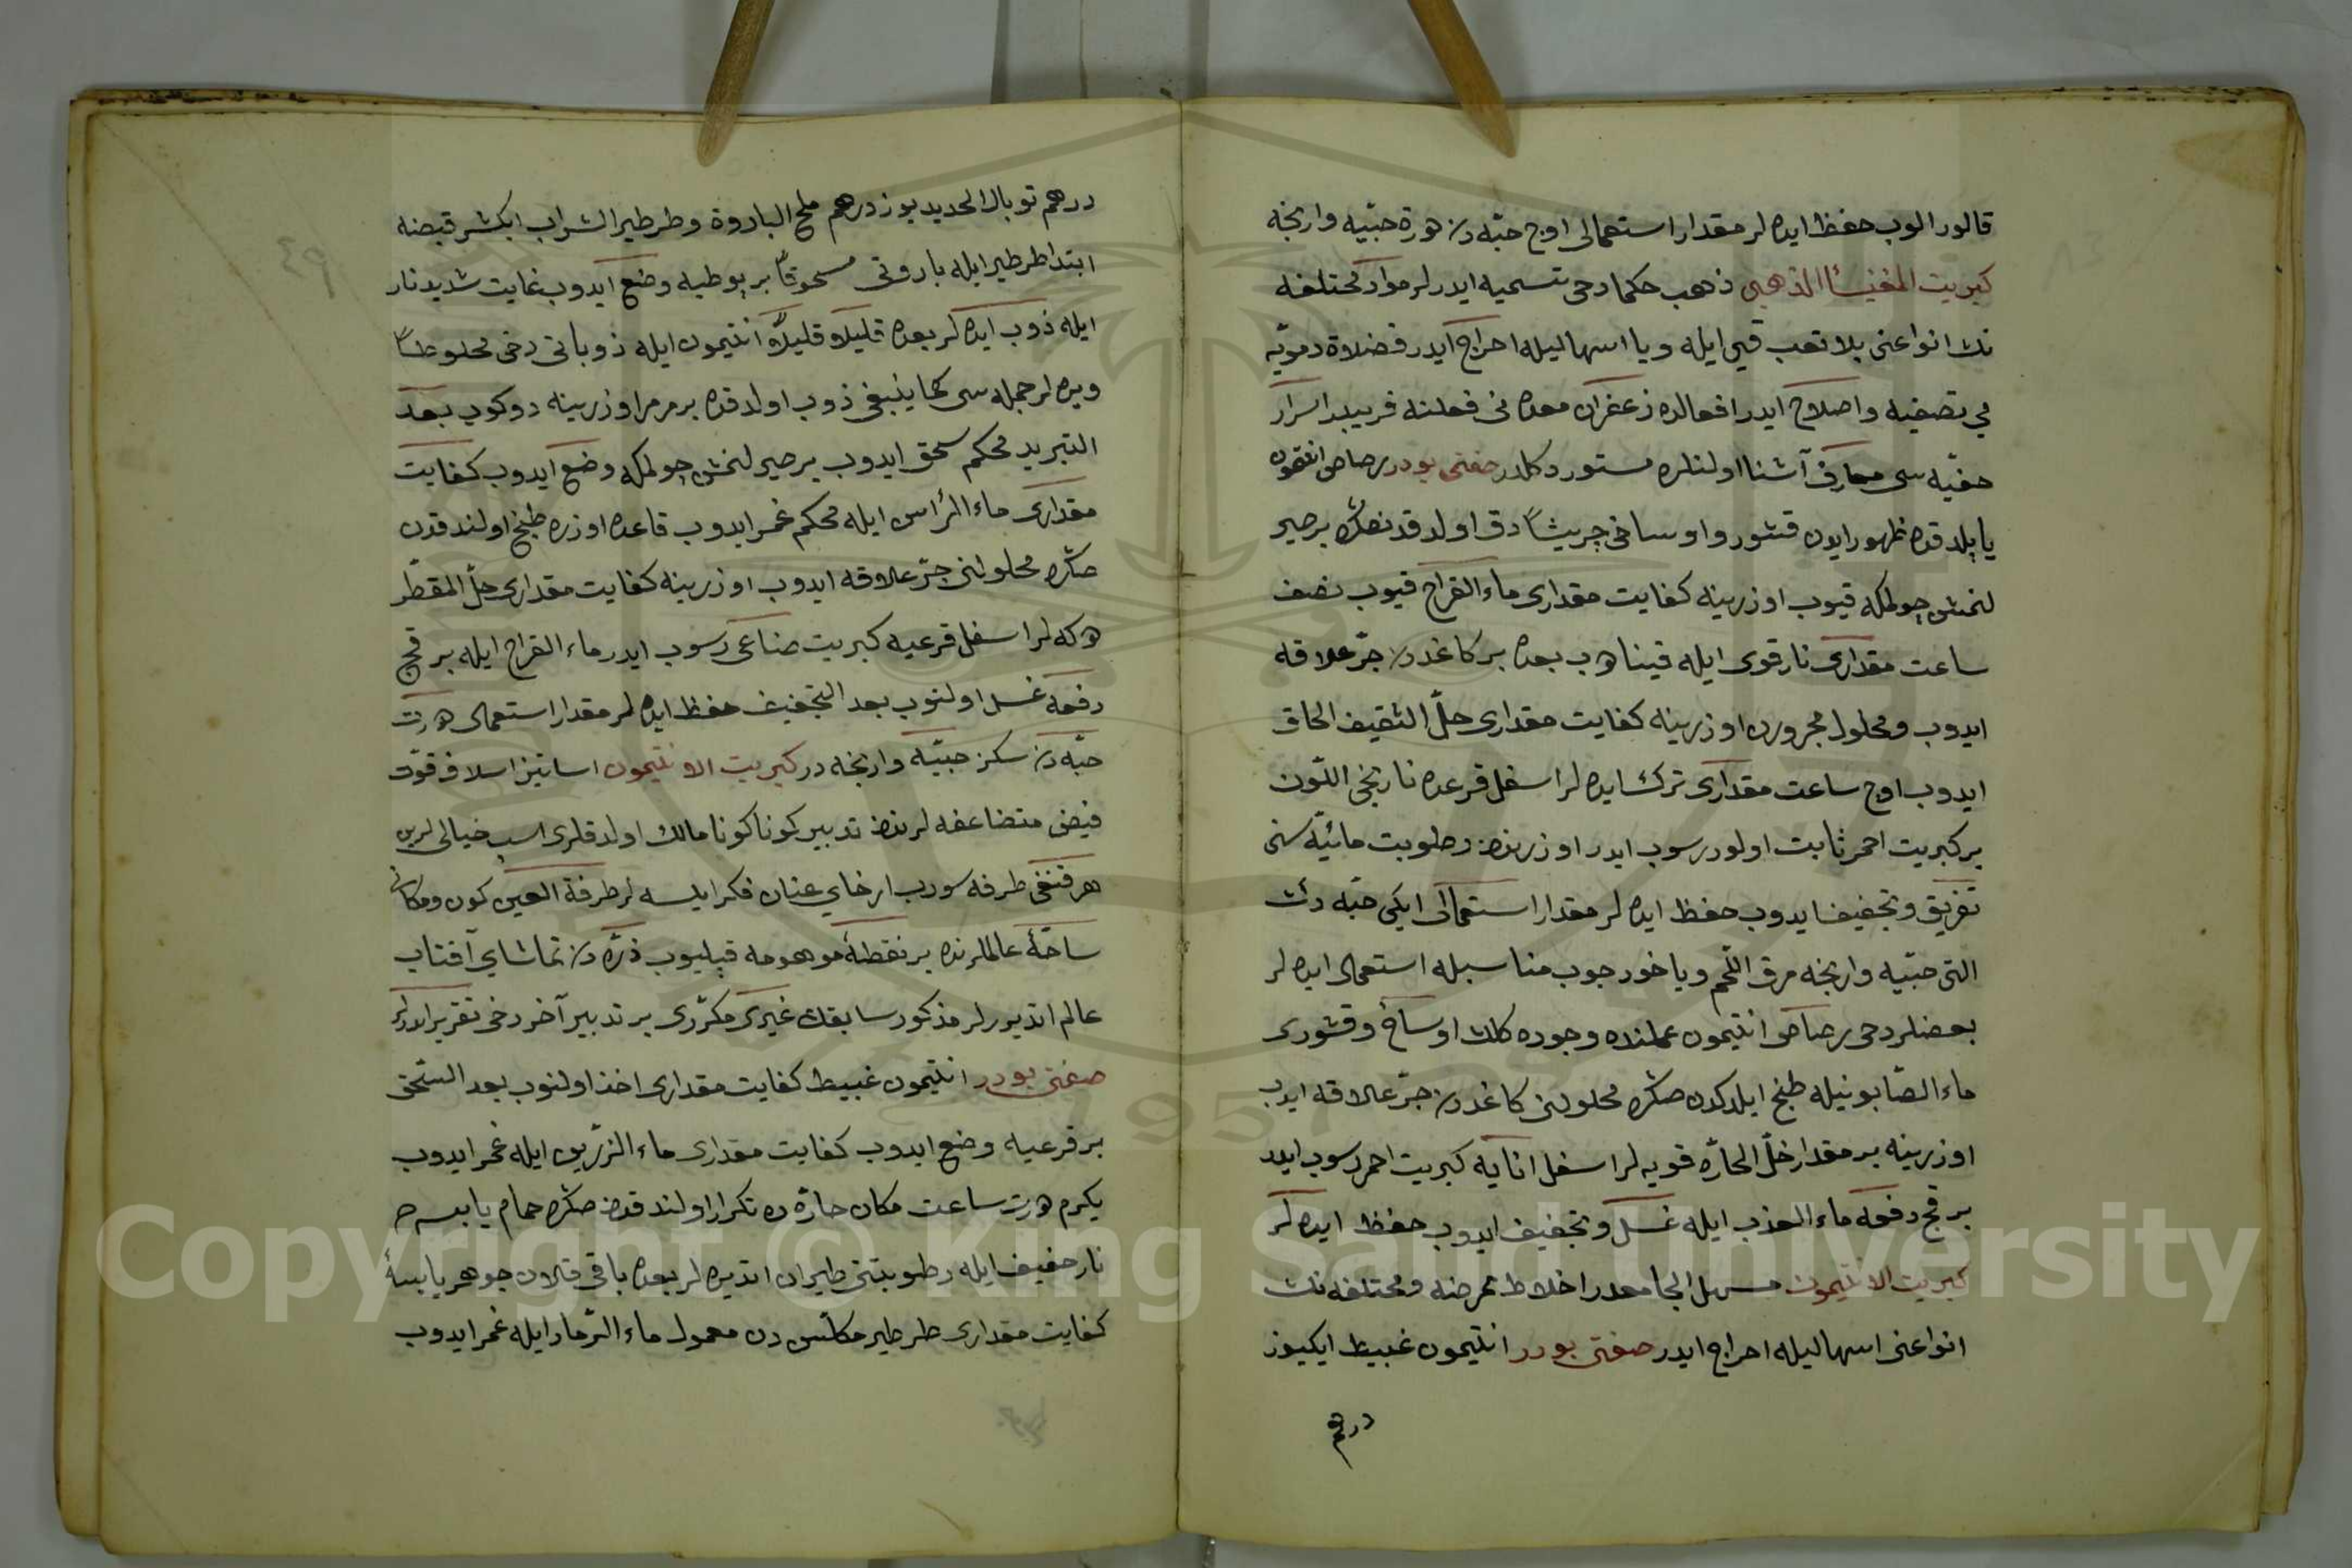 قالور الوب حفظ ايده لر مقدار استعمالى اوچ حبّه دن درت حبّيه وارنجه
كبريت المغنيسا الذهبى ذهب حكما دخى تسميه ايدرلر مواد مختلفه
نك انواعنى بلا تعب قيئ ايله ويا اسهاليله اخراج ايدر فضلاة دمويّه
يي تصفيه و اصلاح ايدر افعالده زعفران معدنى فعلنه قريبدر اسرار
خفيّه سى معارف آشنا اولنلره مستور دكلدر صفتى بودر رصاص انتيمون
يا پيلدقده ظهور ايدن قشور و اوساخى جريشاً دق اولدقدنصكره بر صير
لنمش چولمكه قيوب اوزرينه كفايت مقدارى ماء القراح قيوب نصف
ساعت مقدارى نار قوى ايله قيناد وب بعده بر كاغددن جرّ علاقه
ايدوب و محلول مجرورن اوزرينه كفايت مقدارى خلّ الثقيف الحاق
ايدوب اوچ ساعت مقدارى ترك ايده لر اسفل قرعده نارنجى اللّون
بر كبريت احمر ثابت اولور رسوب ايدر اوزرندن رطوبت مائيّه سنى
تفريق و تجفيف ايدوب حفظ ايده لر مقدار استعمالى ايكى حبّه دن
التى حبّيه وارنجه مرق اللّحم ويا خود حبوب مناسبله استعمال ايده لر
بعضلر دخى رصاص انتيمون عملنده وجوده كلان اوساخ و قشورى
ماء الصّابونيله طبخ ايلدكدن صكره محلولنى كاغددن جرّ علاقه ايدوب
اوزرينه بر مقدار خلّ الحارّه قويه لر اسفل انايه كبريت احمر رسوب ايدر
بر قچ دفعه ماء العذب ايله غسل و تجفيف ايدوب حفظ ايده لر
كبريت الانتيمون مسهل الجامعدر اخلاط ممرضه و مختلفه نك
انواعنى اسهاليله اخراج ايدر صفتى بودر انتيمون غبيط ايكيوز
درهم
درهم توبال الحديد يوز درهم ملح البارودة و طرطير الشراب ايكشر قبضه
ابتدا طرطير ايله بارودى مسحوقاً بر بوطيه وضع ايدوب غايت شديد نار
ايله ذوب ايده لر بعده قليلاً و قليلاً انتيمون ايله ذوباتى دخى مخلوطاً
ويره لر جمله سى كما ينبغى ذوب اولدقده بر مرمر اوزرينه دوكوب بعد
التبريد محكم سحق ايدوب بر صيرلنمش چولمكه وضع ايدوب كفايت
مقدارى ماء الرأس ايله محكم غمر ايدوب قاعده اوزره طبخ اولندقدن
صكره محلولنى جرّ علاقه ايدوب اوزرينه كفايت مقدارى خلّ المقطّر
دوكه لر اسفل قرعيه كبريت صناعى رسوب ايدر ماء القراح ايله بر قچ
دفعه غسل اولنوب بعد التجفيف حفظ ايده لر مقدار استعمالى درت
حبّه دن سكز حبّيه وارنجه در كبريت الانتيمون اساتيز اسلاف قوّت
فيض متضاعفه لرندن تدبير كوناكونا مالك اولدقلرى اسب خيالى لرين
هر قنغى طرفه سورب ارخاى عنان فكر ايلسه لر طرفة العين كون و مكان
ساحّۀ عالملرنده بر نقطۀ موهومه قيليوب ذرّه دن تماشاى آفتاب
عالم انديرلر مذكور سابقك غيرى مكرّرى بر تدبير آخر دخى تقرير ايدرلر
صفتى بودر انتيمون غبيط كفايت مقدارى اخذ اولنوب بعد السّحق
بر قرعيه وضع ايدوب كفايت مقدارى ماء الزرّين ايله غمر ايدوب
يكرم درت ساعت مكان حارّه ده تكرار اولندقدن صكره حمام يابسه
نار خفيف ايله رطوبتنى طيران اتديره لر بعده باقى قلان جوهر يابسۀ
كفايت مقدارى طرطير مكلّس دن معمول ماء الرّماد ايله غمر ايدوب
Copyright © King Saud University